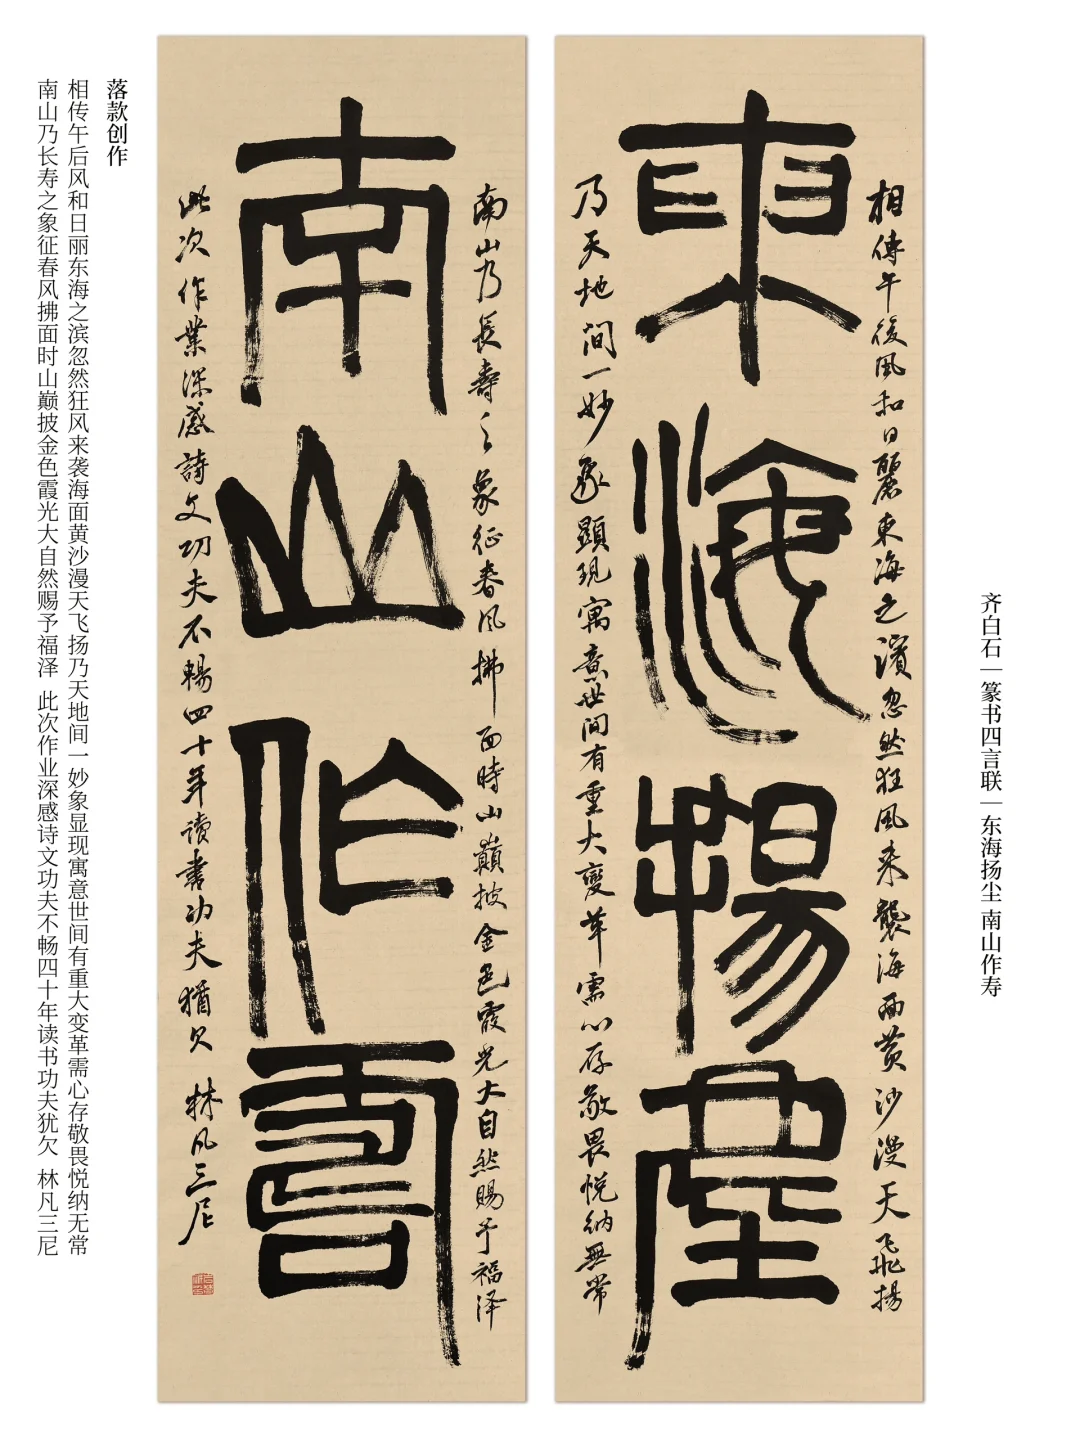 齐白石｜篆书四言联｜东海扬尘 南山作寿
相傳午後風和日麗東海之濱忽然狂風来襲海面黄沙漫天飛揚
東海揚塵
乃天地间一妙象顯現寓意世间有重大變革需心存敬畏悦纳無常
南山乃長壽之象征春風拂面時山巔披金色霞光大自然赐予福泽
南山作壽
此次作業深感詩文功夫不暢四十年读書功夫猶欠 林凡三尼
落款创作
相传午后风和日丽东海之滨忽然狂风来袭海面黄沙漫天飞扬乃天地间一妙象显现寓意世间有重大变革需心存敬畏悦纳无常
南山乃长寿之象征春风拂面时山巅披金色霞光大自然赐予福泽 此次作业深感诗文功夫不畅四十年读书功夫犹欠 林凡三尼